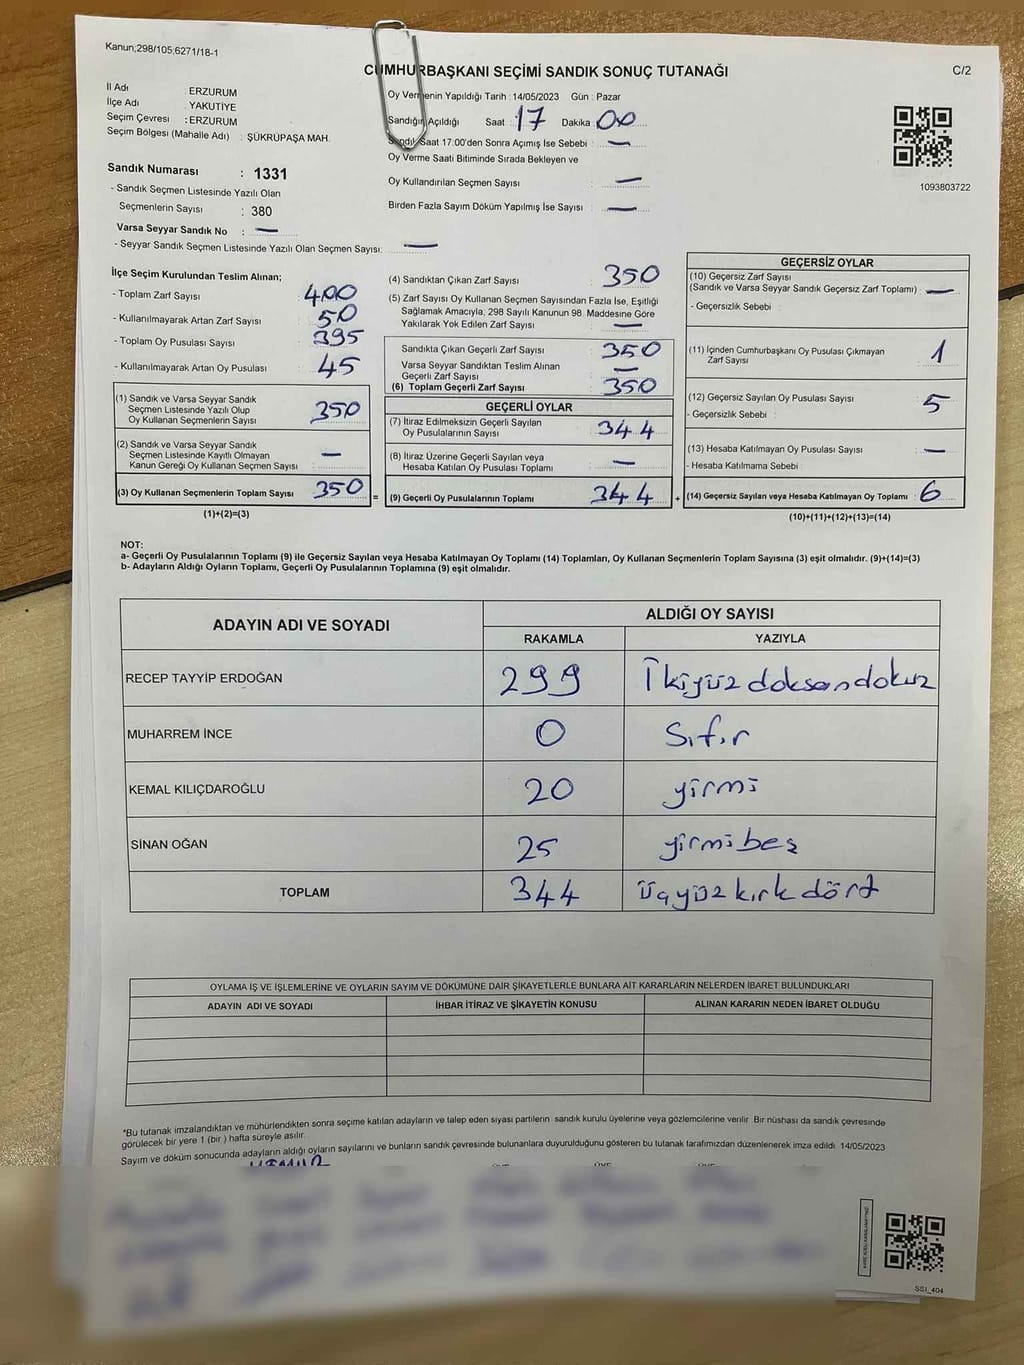 Kanun;298/105;6271/18-1
CUMHURBAŞKANI SEÇİMİ SANDIK SONUÇ TUTANAĞI
C/2
İl Adı : ERZURUM
İlçe Adı : YAKUTİYE
Seçim Çevresi : ERZURUM
Seçim Bölgesi (Mahalle Adı) : ŞÜKRÜPAŞA MAH.
Oy Vermenin Yapıldığı Tarih : 14/05/2023 Gün : Pazar
Sandığın Açıldığı Saat : 17 Dakika 00
Sandık Saat 17:00'den Sonra Açımış İse Sebebi : —
Oy Verme Saati Bitiminde Sırada Bekleyen ve
Oy Kullandırılan Seçmen Sayısı : —
Birden Fazla Sayım Döküm Yapılmış İse Sayısı : —
1093803722
Sandık Numarası : 1331
- Sandık Seçmen Listesinde Yazılı Olan
Seçmenlerin Sayısı : 380
Varsa Seyyar Sandık No : —
- Seyyar Sandık Seçmen Listesinde Yazılı Olan Seçmen Sayısı: —
İlçe Seçim Kurulundan Teslim Alınan;
- Toplam Zarf Sayısı : 400
- Kullanılmayarak Artan Zarf Sayısı : 50
- Toplam Oy Pusulası Sayısı : 395
- Kullanılmayarak Artan Oy Pusulası : 45
(1) Sandık ve Varsa Seyyar Sandık
Seçmen Listesinde Yazılı Olup
Oy Kullanan Seçmenlerin Sayısı : 350
(2) Sandık ve Varsa Seyyar Sandık
Seçmen Listesinde Kayıtlı Olmayan
Kanun Gereği Oy Kullanan Seçmen Sayısı : —
(3) Oy Kullanan Seçmenlerin Toplam Sayısı : 350 =
(1)+(2)=(3)
(4) Sandıktan Çıkan Zarf Sayısı : 350
(5) Zarf Sayısı Oy Kullanan Seçmen Sayısından Fazla İse, Eşitliği
Sağlamak Amacıyla, 298 Sayılı Kanunun 98. Maddesine Göre
Yakılarak Yok Edilen Zarf Sayısı : —
Sandıkta Çıkan Geçerli Zarf Sayısı : 350
Varsa Seyyar Sandıktan Teslim Alınan
Geçerli Zarf Sayısı : —
(6) Toplam Geçerli Zarf Sayısı : 350
GEÇERLİ OYLAR
(7) İtiraz Edilmeksizin Geçerli Sayılan
Oy Pusulalarının Sayısı : 344
(8) İtiraz Üzerine Geçerli Sayılan veya
Hesaba Katılan Oy Pusulası Toplamı : —
(9) Geçerli Oy Pusulalarının Toplamı : 344 +
GEÇERSİZ OYLAR
(10) Geçersiz Zarf Sayısı
(Sandık ve Varsa Seyyar Sandık Geçersiz Zarf Toplamı) : —
- Geçersizlik Sebebi :
(11) İçinden Cumhurbaşkanı Oy Pusulası Çıkmayan
Zarf Sayısı : 1
(12) Geçersiz Sayılan Oy Pusulası Sayısı : 5
- Geçersizlik Sebebi :
(13) Hesaba Katılmayan Oy Pusulası Sayısı : —
- Hesaba Katılmama Sebebi :
(14) Geçersiz Sayılan veya Hesaba Katılmayan Oy Toplamı : 6
(10)+(11)+(12)+(13)=(14)
NOT:
a- Geçerli Oy Pusulalarının Toplamı (9) ile Geçersiz Sayılan veya Hesaba Katılmayan Oy Toplamı (14) Toplamları, Oy Kullanan Seçmenlerin Toplam Sayısına (3) eşit olmalıdır. (9)+(14)=(3)
b- Adayların Aldığı Oyların Toplamı, Geçerli Oy Pusulalarının Toplamına (9) eşit olmalıdır.
ADAYIN ADI VE SOYADI
ALDIĞI OY SAYISI
RAKAMLA YAZIYLA
RECEP TAYYİP ERDOĞAN 299 İkiyüz doksandokuz
MUHARREM İNCE 0 Sıfır
KEMAL KILIÇDAROĞLU 20 yirmi
SİNAN OĞAN 25 yirmibeş
TOPLAM 344 üçyüz kırk dört
OYLAMA İŞ VE İŞLEMLERİNE VE OYLARIN SAYIM VE DÖKÜMÜNE DAİR ŞİKAYETLERLE BUNLARA AİT KARARLARIN NELERDEN İBARET BULUNDUKLARI
ADAYIN ADI VE SOYADI İHBAR İTİRAZ VE ŞİKAYETİN KONUSU ALINAN KARARIN NEDEN İBARET OLDUĞU
*Bu tutanak imzalandıktan ve mühürlendikten sonra seçime katılan adayların ve talep eden siyasi partilerin sandık kurulu üyelerine veya gözlemcilerine verilir. Bir nüshası da sandık çevresinde
görülecek bir yere 1 (bir ) hafta süreyle asılır.
Sayım ve döküm sonucunda adayların aldığı oyların sayılarını ve bunların sandık çevresinde bulunanlara duyurulduğunu gösteren bu tutanak tarafımızdan düzenlenerek imza edildi. 14/05/2023
SSI_404